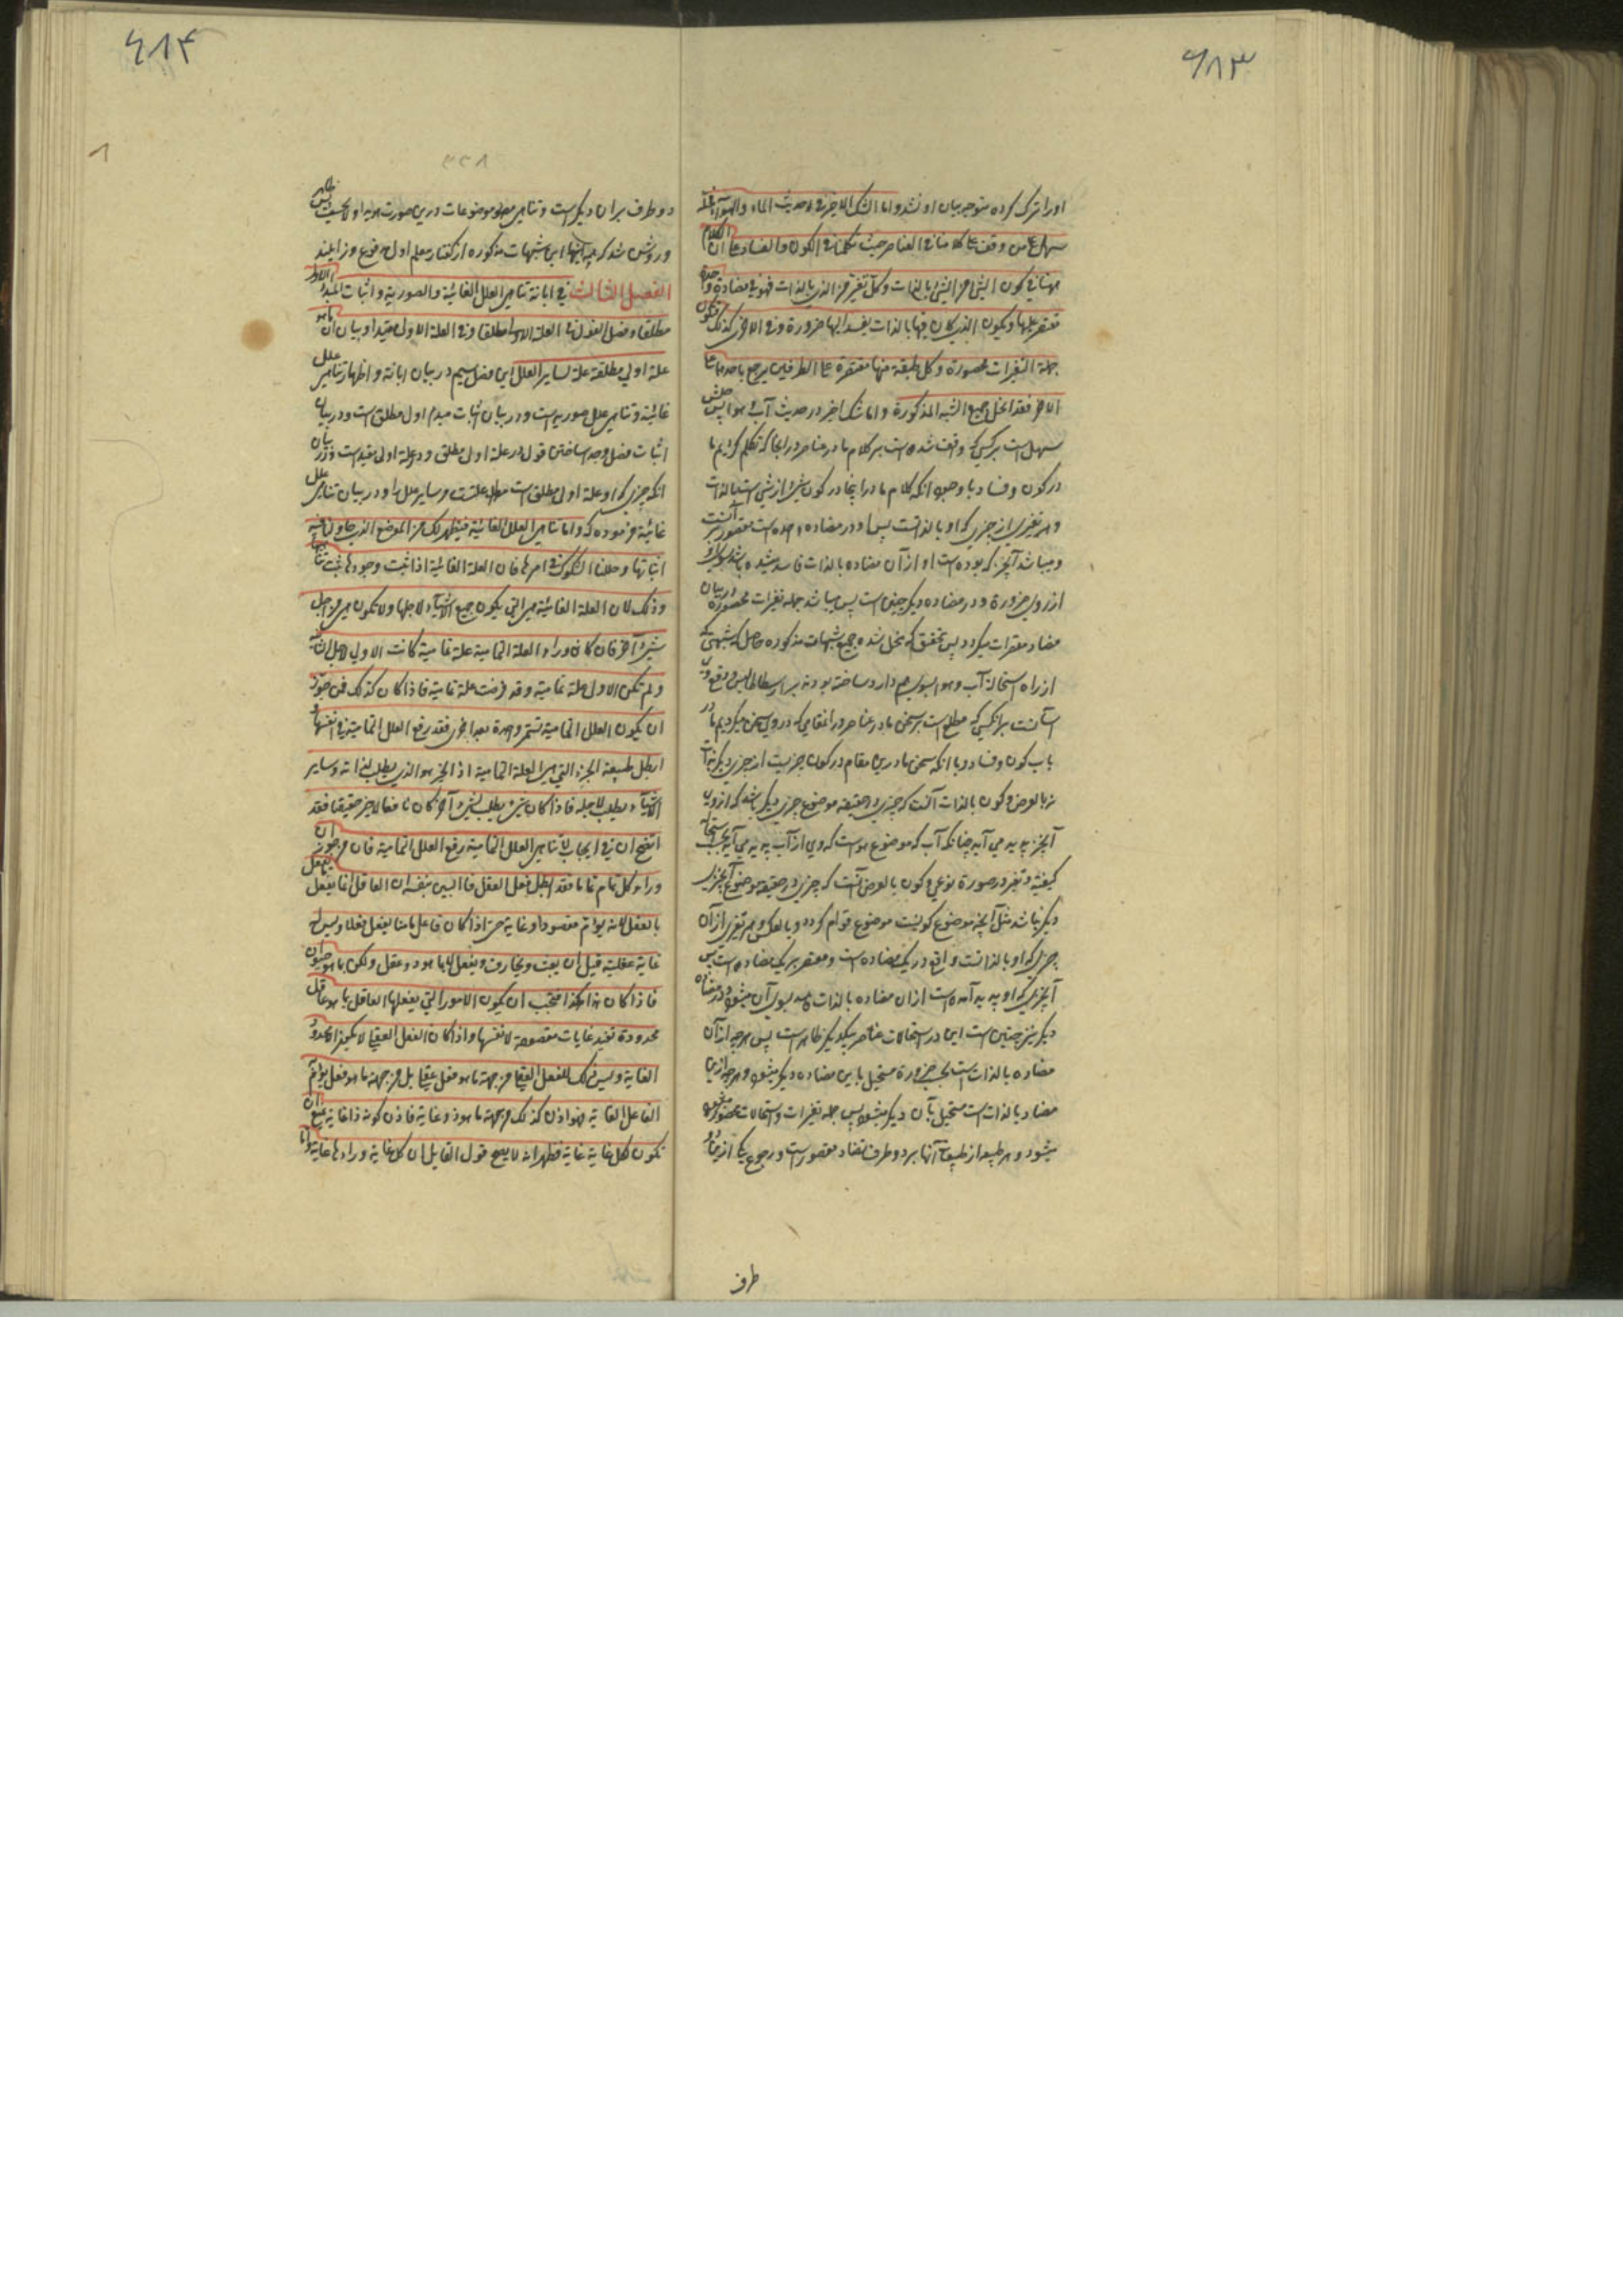 ۶۸۳
اورا ترک کرده متوجه بیان او نشد و اما الشک الاخیر فی حدیث الماء والهواء فحله
سهل علی من وقف علی کلامنا فی العناصر حیث تکلمنا فی الکون والفساد علی ان الکلام
ههنا فی کون الشیء من الشیء بالذات وکل تغیر من الذی بالذات فهو فی مضادة واحدة
مقتصر علیها ویکون الذی کان منها بالذات یفسد الیها ضرورة وفی الاخری کذلک فتکون
جملة التغیرات محصورة وکل طبقة منها مقتصرة علی الطرفین یرجع باحدهما علی
الاخر فقد انحل جمیع الشبه المذکورة و اما شک اخیر در حدیث آب و هوا پس حلش
سهل است بر کسی که واقف شده است بر کلام ما در عناصر در انجا که تکلم کردیم ما
در کون و فساد با وجود انکه کلام ما در اینجا در کون شیء از شیء است بالذات
و هر تغیری از چیزی که او بالذاتست پس او در مضاده واحده است مقصور بر آنست
و میباشد آنچیز که بوده است او از آن مضاده بالذات فاسد میشده باشد بسوی او
از روی ضرورة و در مضاده دیگر چنین است پس میباشد جمله تغیرات محصوره در میان
مضاد مقرات میکردد پس تحقق که منحل شده جمیع شبهات مذکوره حاصل که شبهتی که
از راه استحاله آب و هوا بسوی هم دارد ساخته بودند بر ارسطاطالیس دفع وی
آسانست بر آنکسی که مطلع است بر سخن ما در عناصر در انمقامی که در وی سخن میکردیم ما در
باب کون و فساد و با انکه سخن ما درین مقام در کون چیزیست از چیزی دیگر بالذات
نه بالعرض و کون بالذات آنست که چیزی در حقیقه موضوع چیزی دیگر باشد که از وی
آنچیز پدید می آید چنانکه آب که موضوع هوا است که وی از آب پدید می آید بحسب استحاله
کیفیة و تغیر در صورة نوعی و کون بالعرض آنست که چیزی در حقیقه موضوع آنچیز
دیگر نباشد مثل آنچه موضوع کونیست موضوع قوام کردد و بالعکس و هر تغیری از آن
چیزی که او بالذاتست واقع در یک مضاده است و مقتصر بر یک مضاده است پس
آنچیزی که او پدید آمده است از ان مضاده بالذات فاسد بسوی آن میشود و در مضاده
دیگر نیز چنین است این در استحالات عناصر بیکدیگر ظاهر است پس هر چه از آن
مضاده بالذات است بحسب ضرورة مستحیل باین مضاده دیگر میشود و هر چه ازین
مضاد بالذات است مستحیل بآن دیگر میشود پس جمله تغیرات و استحالات محصوره
میشود و هر طبیعه از طبیعت آنها بر دو طرف تضاد مقصور است و رجوع یکی ازین
طرف
۶۸۴
دو طرف بر ان دیگر است و تناهی موضوعات درین صورت هویدا و لایحست پس ظاهر
و روشن شد که جمیع اینها این شبهات مذکوره از کفتار معلم اول مرفوع و زایلند
الفصل الثالث فی ابانة تناهی العلل الغائیة والصوریة واثبات المبدأ الاول
مطلقا وفصل القول فی العلة الاولی مطلقا وفی العلة الاولی مقیدا وبیان ان ما هو
علة اولی مطلقة علة لسایر العلل این فصل سیم در بیان ابانة و اظهار تناهی علل
غائیة و تناهی علل صوریه است و در بیان اثبات مبدء اول مطلق است و در بیان
اثبات فصل و جدا ساختن قول در علة اولی مطلق و در علة اولی مقید است و در بیان
انکه چیزی که او علة اولی مطلق است مطلق علتست مر سایر علل را و در بیان تناهی علل
غائیة فرموده که واما تناهی العلل الغائیة فیظهر لک من الموضع الذی حاولنا فیه
اثباتها وحللنا الشکوک فی امرها فان العلة الغائیة اذا ثبت وجودها ثبت تناهیها
وذلک لان العلة الغائیة هی التی یکون جمیع الاشیاء لاجلها ولا تکون هی من اجل
شیء آخر فان کان وراء العلة التمامیة علة تمامیة کانت الاولی لاجل الثانیة
ولم تکن الاولی علة تمامیة وقد فرضت علة تمامیة فاذا کان کذلک فمن جوز
ان یکون العلل التمامیة تستمر واحدة بعد اخری فقد رفع العلل التمامیة فی انفسها و
ابطل طبیعة الخیر التی هی العلة التمامیة اذ الخیر هو الذی یطلب لذاته وسایر
الاشیاء یطلب لاجله فاذا کان شیء یطلب لشیء آخر کان نافعا لا خیر حقیقیا فقد
اتضح ان فی ایجاب لا تناهی العلل التمامیة رفع العلل التمامیة فان من جوز ان
وراء کل تمام تماما فقد ابطل فعل العقل فان البین بنفسه ان العاقل انما یفعل ما یفعل
بالعقل لانه یؤم مقصودا وغایة حتی اذا کان فاعل ما منا یفعل فعلا ولیس له
غایة عقلیة قیل ان یعبث ویجازف ویفعل لا بما هو ذو عقل ولکن بما هو حیوان
فاذا کان هذا هکذا فیجب ان یکون الامور التی یفعلها العاقل بما هو عاقل
محدودة تفید غایات مقصودة لانفسها واذا کان الفعل العقلی لا یکون الا محدود
الغایة ولیس ذلک للفعل العقلی من جهة ما هو فعل عقلی بل من جهة ما هو فعل یؤم
الفاعل الغایة فهو اذن کذلک من جهة ما هو ذو غایة فاذن کونه ذا غایة یمنع ان
تکون لکل غایة غایة فظهر انه لا یصح قول القایل ان کل غایة وراءها غایة واما